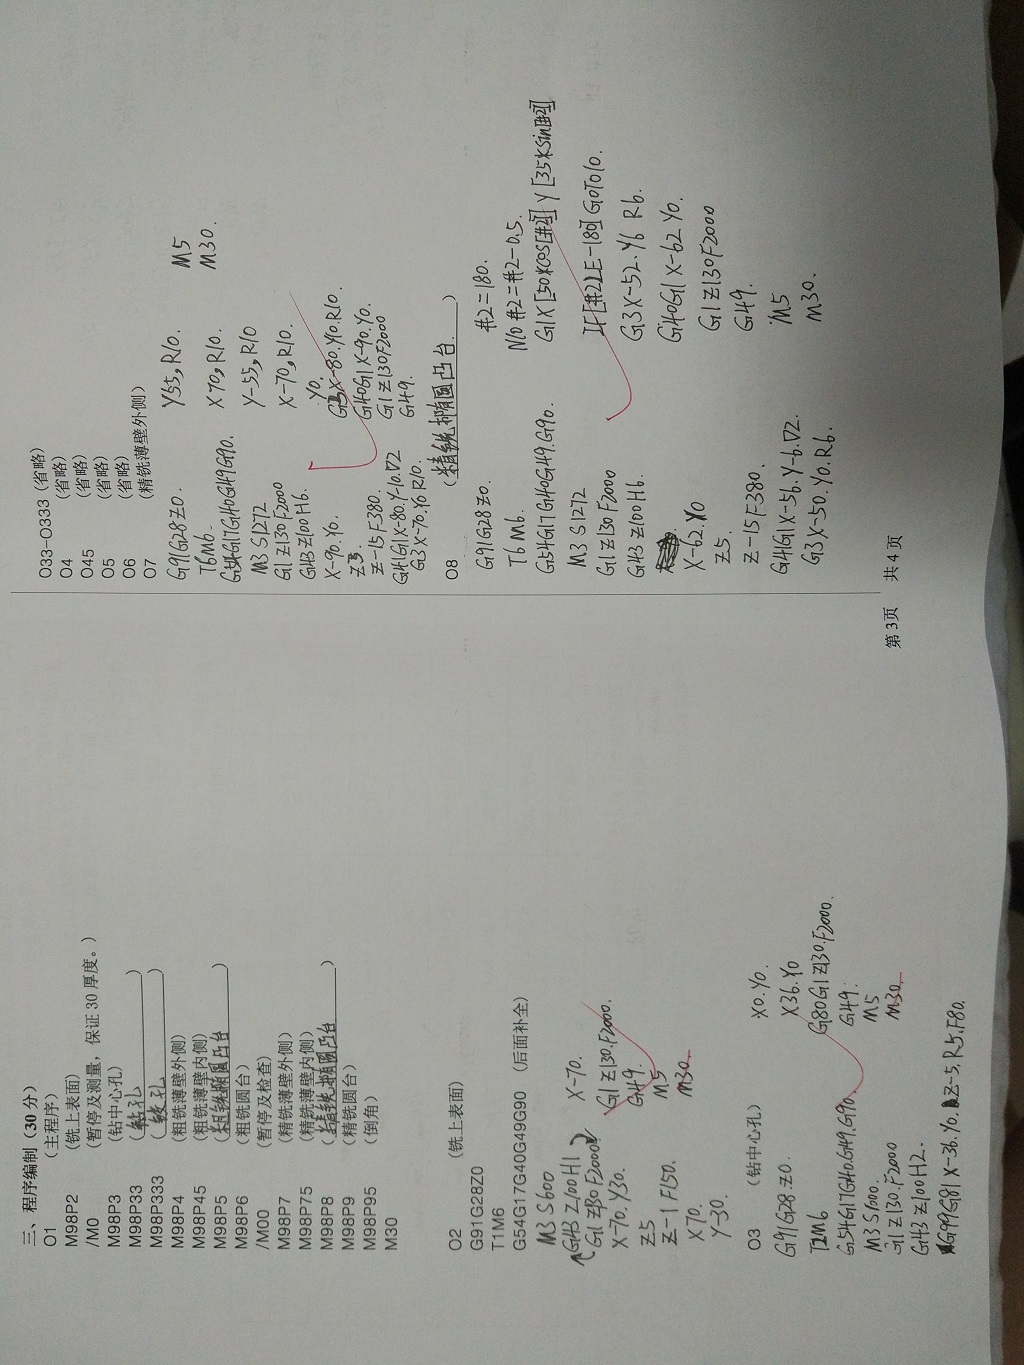 三、程序编制（30 分）
O1 （主程序）
M98P2 （铣上表面）
/M0 （暂停及测量，保证 30 厚度。）
M98P3 （钻中心孔）
M98P33 （钻孔）
M98P333 （铰孔）
M98P4 （粗铣薄壁外侧）
M98P45 （粗铣薄壁内侧）
M98P5 （粗铣椭圆凸台）
M98P6 （粗铣圆台）
/M00 （暂停及检查）
M98P7 （精铣薄壁外侧）
M98P75 （精铣薄壁内侧）
M98P8 （精铣椭圆凸台）
M98P9 （精铣圆台）
M98P95 （倒角）
M30
O2 （铣上表面）
G91G28Z0
T1M6
G54G17G40G49G90 （后面补全）
M3 S600
G43 Z100H1
G1 Z130F2000
X-70, Y30.
Z5
Z-1 F150.
X70.
Y-30.
X-70.
G1 Z130.F2000.
G49.
M5
M30
O3 （钻中心孔）
G91G28.Z0.
T2M6
G54G17G40.G49.G90.
M3 S1000.
G1 Z130.F2000
G43 Z100H2.
G99G81X-36.Y0.Z-5,R5.F80.
X0.Y0.
X36.Y0
G80G1Z130.F2000.
G49.
M5
M30
O33-O333（省略）
O4 （省略）
O45 （省略）
O5 （省略）
O6 （省略）
O7 （精铣薄壁外侧）
G91G28Z0.
T6M6.
G54G17G40G49G90.
M3 S1272
G1 Z130F2000
G43 Z100H6.
X-90.Y0.
Z3.
Z-15F380.
G41G1X-80.Y-10.D2
G3X-70.Y0R10.
Y55,R10.
X70,R10.
Y-55,R10
X-70,R10.
Y0.
G3X-80.Y10.R10.
G40G1X-90.Y0.
G1Z130F2000
G49.
M5
M30.
O8 （精铣椭圆凸台）
G91G28Z0.
T6M6.
G54G17G40G49.G90.
M3 S1272
G1 Z130F2000
G43 Z100H6.
X-62.Y0
Z5.
Z-15F380.
G41G1X-56.Y-6.D2
G3X-50.Y0.R6.
#2=180.
N10 #2=#2-0.5.
G1X[50*COS[#2]]Y[35*SIN[#2]]
IF[#2LE-180]GOTO10.
G3X-52.Y6 R6.
G40G1X-62Y0.
G1Z130F2000
G49.
M5
M30.
第 3页 共 4 页